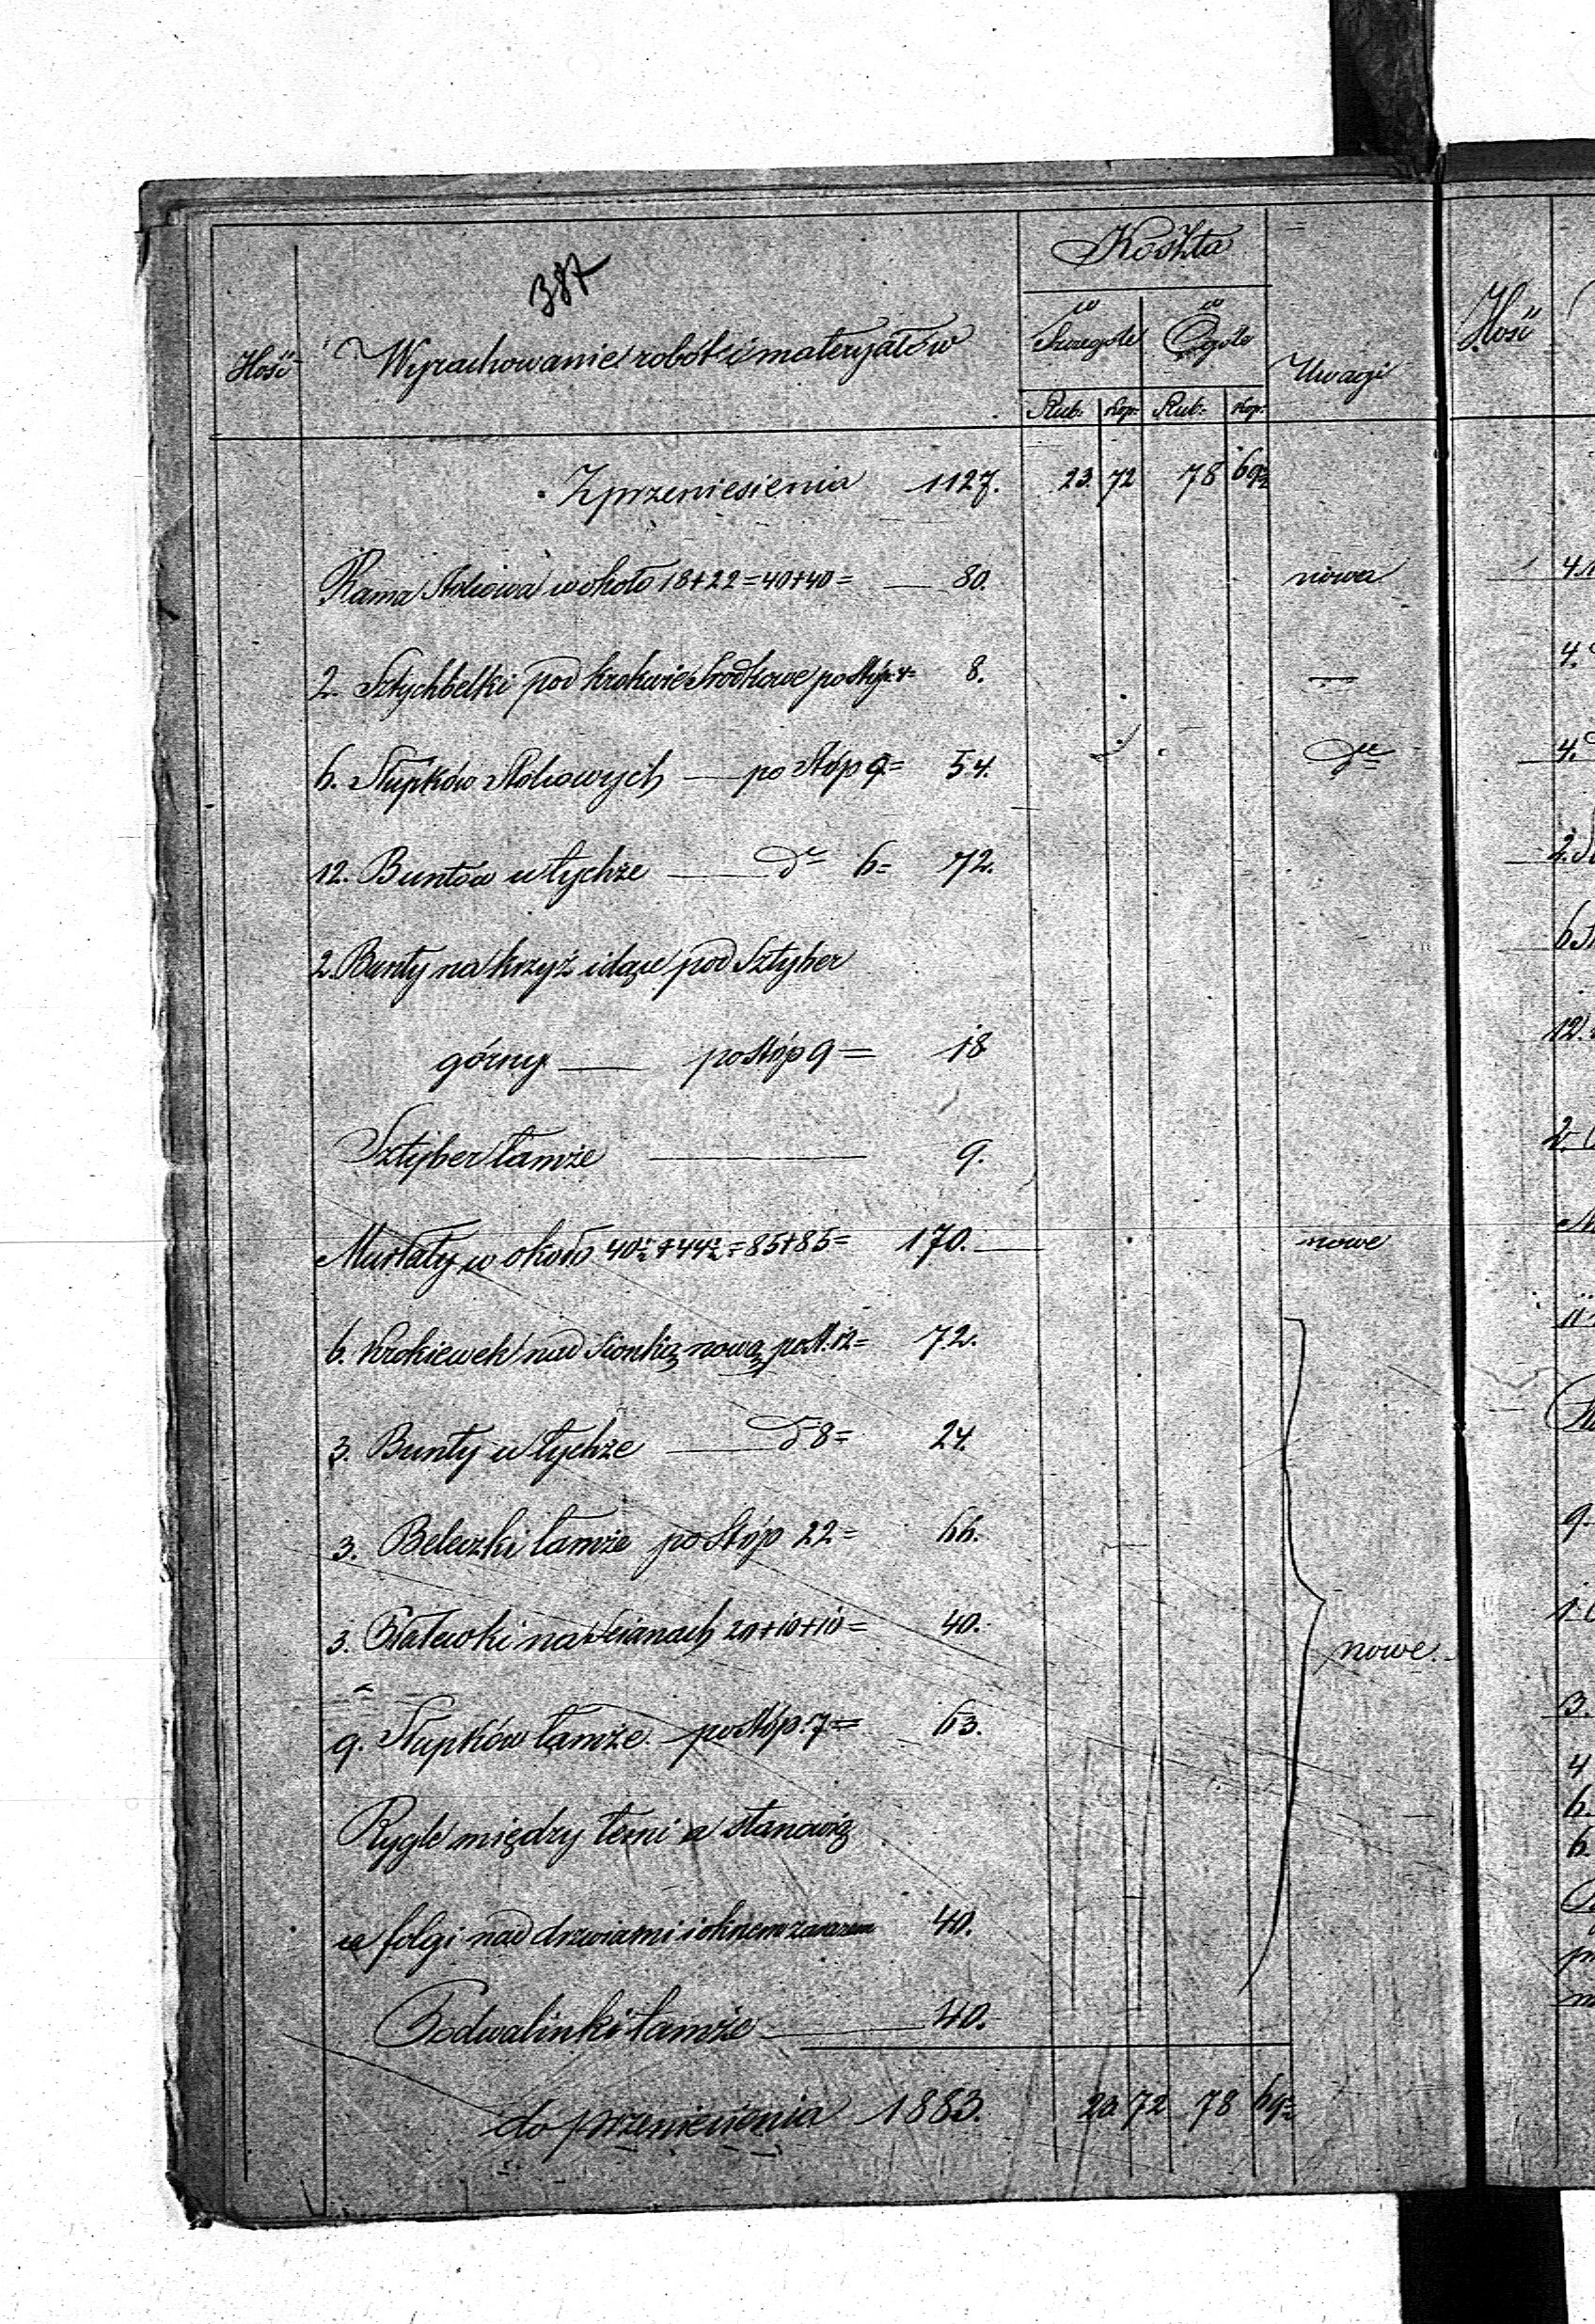 387
Koszta
Ilość
Wyrachowanie robót i materyałów
w Szczególe
w Ogóle
Uwagi
Rub. Kop. Rub. Kop.
Z przeniesienia 1127. 23 72 78 69½
Rama Stolcowa w około 18+22=40+40= 80. nowa
2. Sztychbelki pod krokwie środkowe po stóp 4= 8. —
6. Słupków Stolcowych — po Stóp 9= 54. dto
12. Buntów u tychże — dto 6= 72.
2. Bunty na krzyż idące pod Sztyber
górny — po stóp 9 = 18
Sztyber tamże — 9.
Murłaty w około 40½+44½=85+85= 170. — nowe
6. Krokiewek nad sionką nową po st. 12= 72.
3. Bunty u tychże — dto 8= 24.
3. Beleczki tamże po Stóp 22= 66.
3. Płatewki na ścianach 20+10+10= 40.
nowe.
9. Słupków tamże po stóp. 7= 63.
Rygle między temi a stanowią
ce folgi nad drzwiami i oknem zarazem 40.
Podwalinki tamże — 40.
do przeniesienia 1883. 23 72 78 69½
Ilość